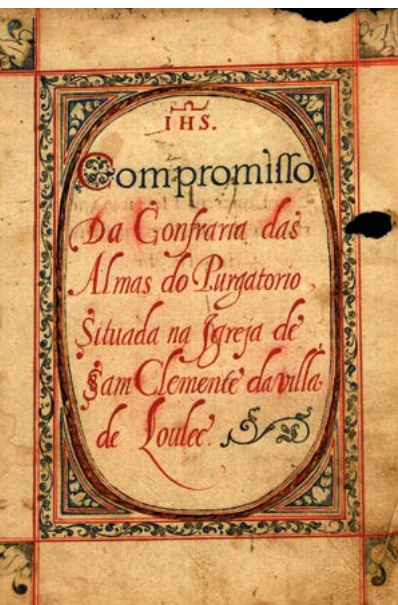 IHS.
Compromisso
Da Confraria das
Almas do Purgatorio,
Situada na Igreja de
Sam Clemente da villa
de Loulee.